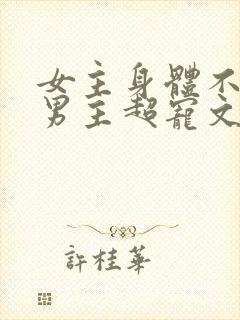 女主身體不
男主超寵文
許桂華